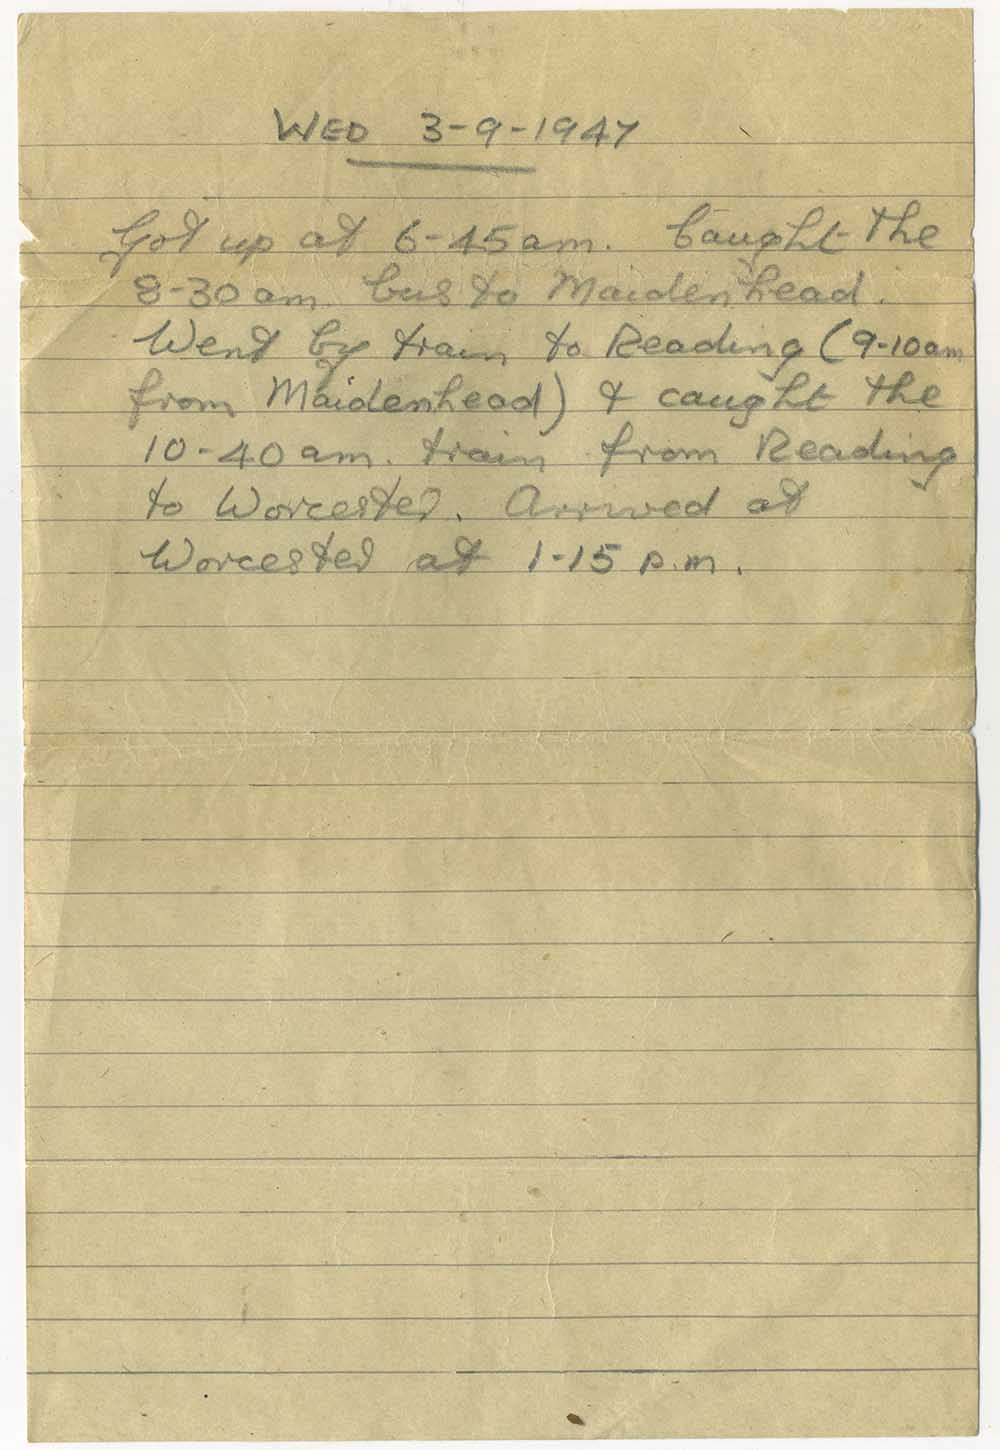 WED 3-9-1947
Got up at 6-45am. Caught the
8-30am bus to Maidenhead.
Went by train to Reading (9-10am
from Maidenhead) & caught the
10-40am. train from Reading
to Worcester. Arrived at
Worcester at 1-15 p.m.